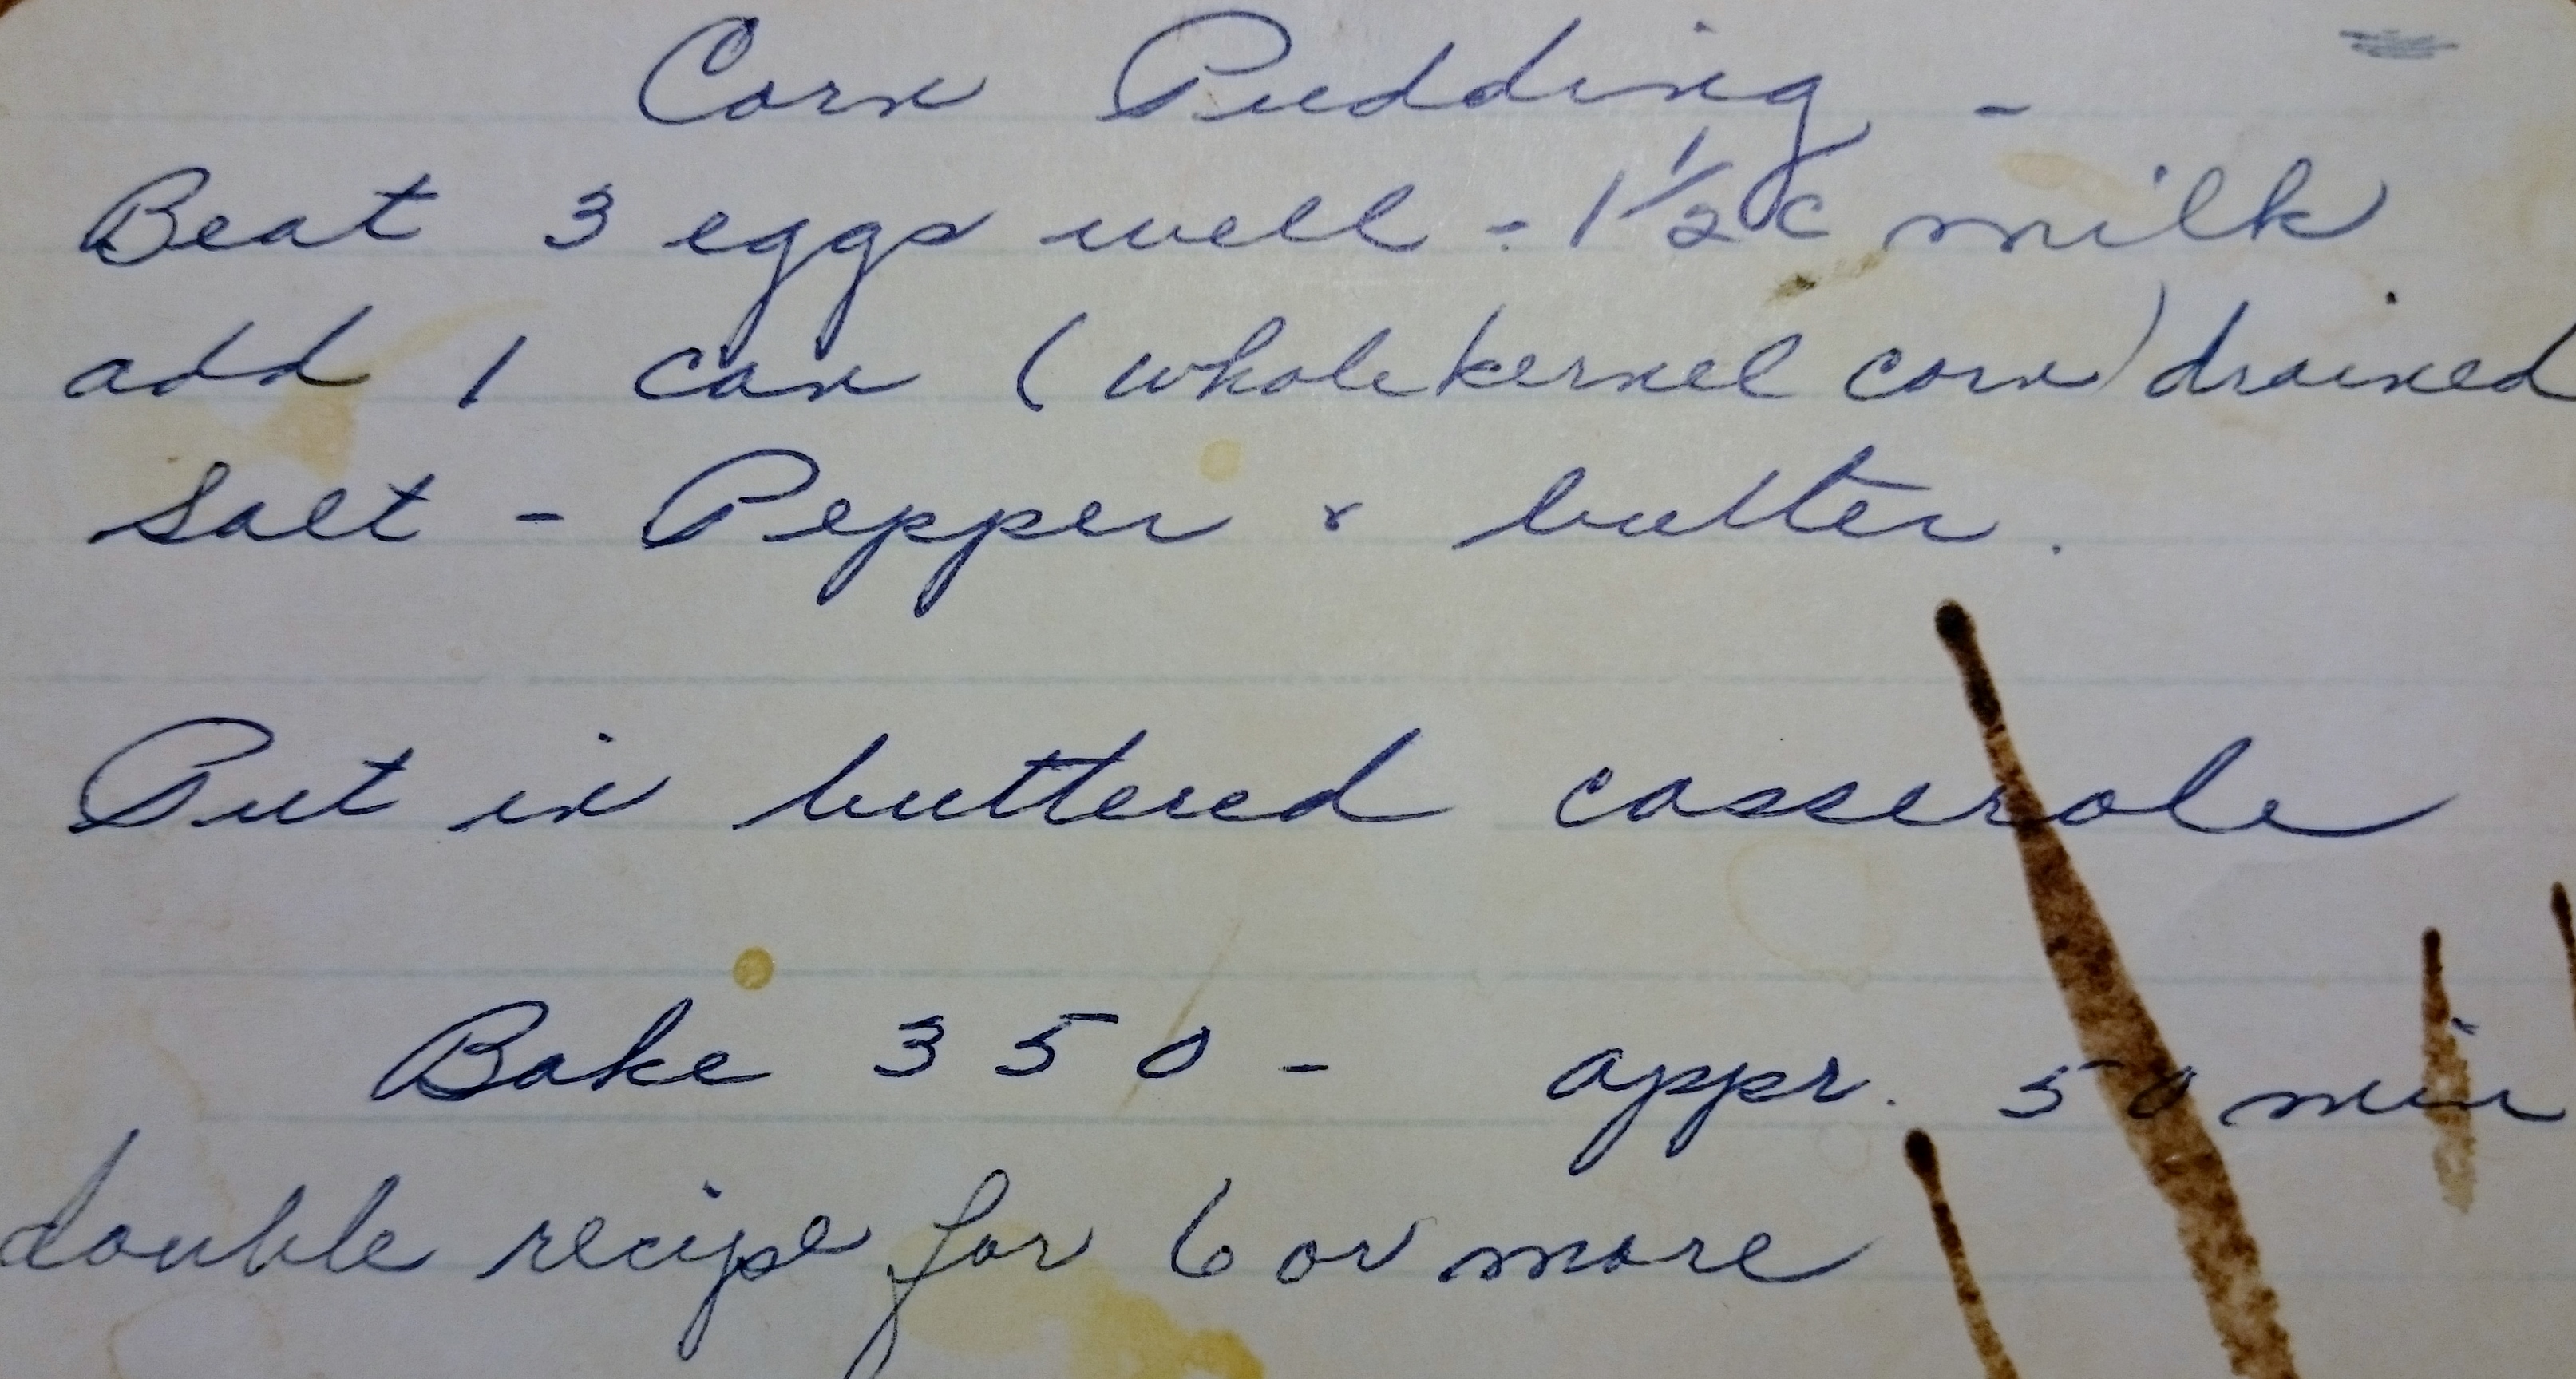 Corn Pudding -
Beat 3 eggs well - 1 1/2 c milk
add 1 can (whole kernel corn) drained
salt - Pepper & butter.
Put in buttered casserole
Bake 350 - appr. 50 min
double recipe for 6 or more